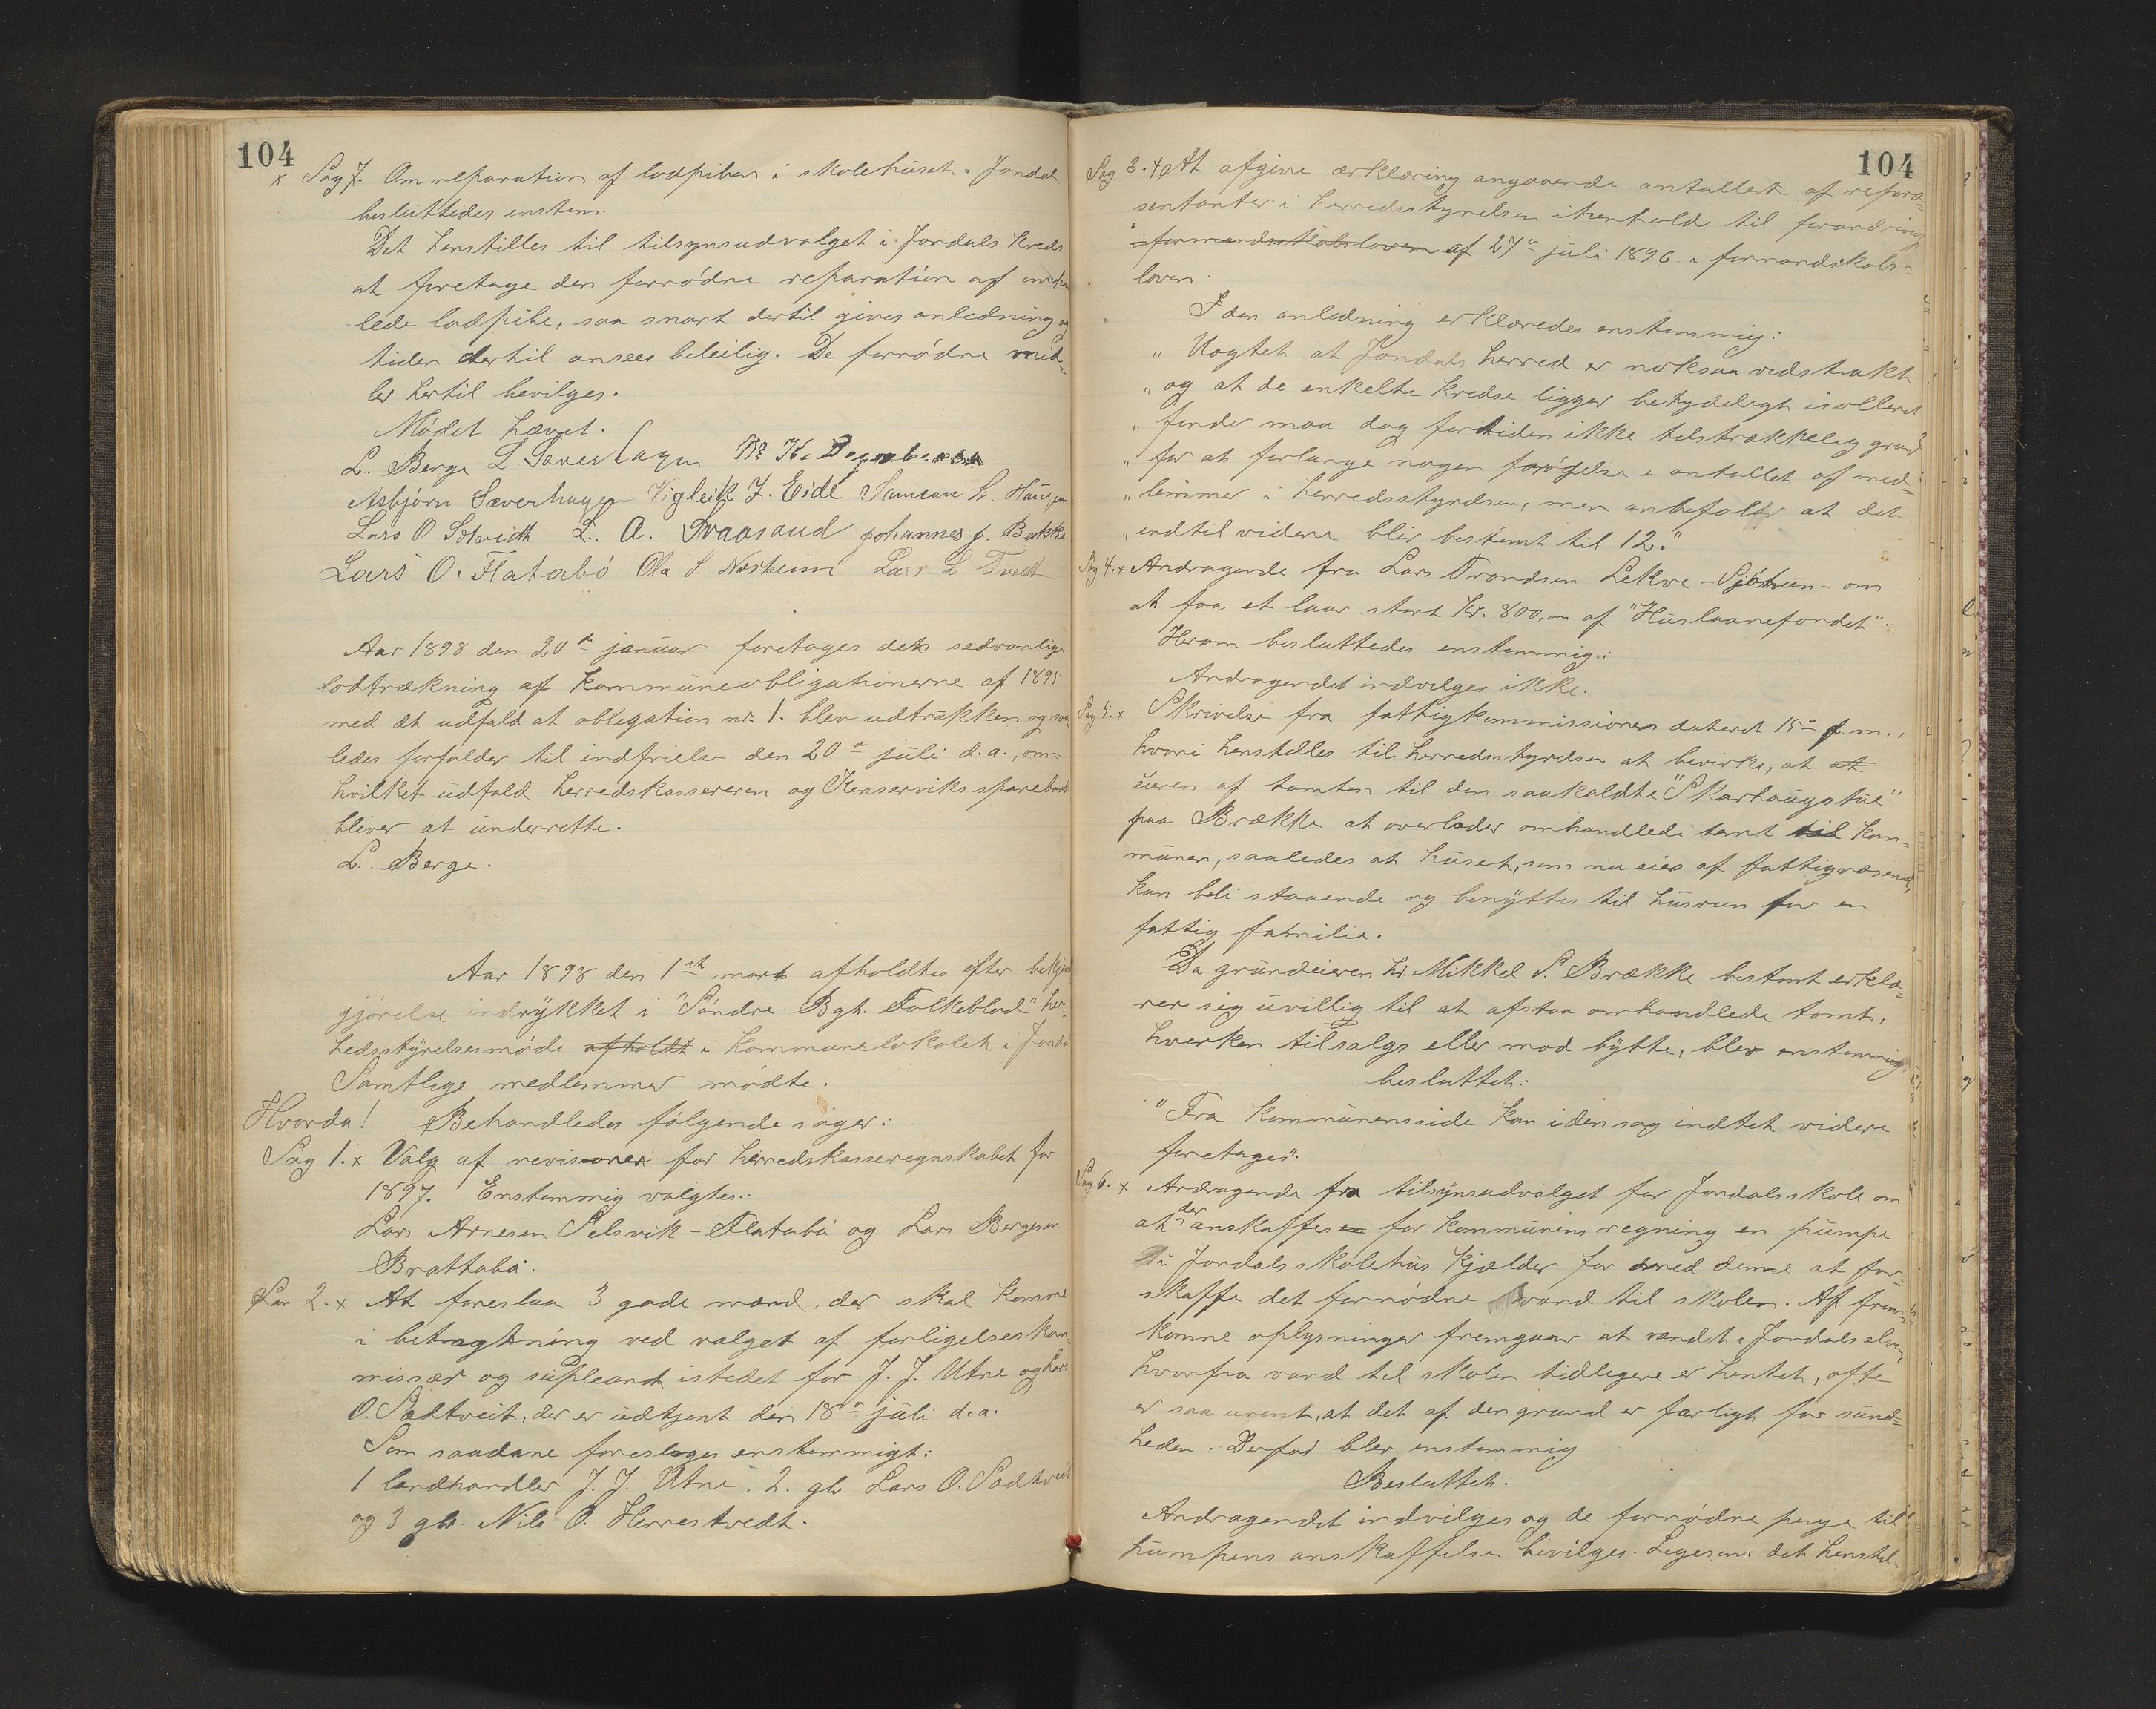 104
x Sag 7. Om reparation af lodpiben i skolehuset i Jondal
besluttedes enstem.
Det henstilles til tilsynsudvalget i Jondals kreds
at foretage den fornödne reparation af omhand
lede lodpibe, saa snart dertil gives anledning og
tiden dertil ansees beleilig. De fornödne mid-
ler hertil bevilges.
Mödet hævet.
L. Berge L. Sæverhagen
Asbjörn Sæverhagen Vigleik J. Eide Samson L.
Lars O Sölvidt L. A. Svaasand Johannes J. Bakke
Lars O. Flatabö Ola S. Næsheim Lars L Tvedt
Aar 1898 den 20de januar foretages den sedvanlige
lodtrækning af kommuneobligationerne af 1895
med det udfald at obligation nr. 1. blev udtrukken og saa
ledes forfalder til indfrielse den 20de juli d.a., om-
hvilket udfald herredskassereren og Kinserviks sparebank
bliver at underrette.
L. Berge.
Aar 1898 den 1ste marts afholdtes efter bekjendt
gjörelse indrykket i "Söndre Bgh. Folkeblad" her-
redsstyrelsesmöde afholdt i kommunelokalet i Jondal
Samtlige medlemmer mödte.
Hvorda! Behandledes fölgende sager:
Sag 1. x Valg af revisorer for herredskasseregnskabet for
1897. Enstemmig valgtes:
Lars Arnesen Selsvik - Flatabö og Lars Bergesen
Brattabö.
Sag 2. x At foreslaa 3 gode mænd, der skal komme
i betragtning ved valget af forligelseskom-
missær og supleant istedet for J. J. Utne og Lars
O. Sædtveit, der er udtjent den 18de juli d.a.
Som saadane foresloges enstemmigt:
1 landhandler J. J. Utne. 2. gb Lars O. Sædtveit
og 3 gb. Nils O. Herrestvedt.
104
Sag 3. x At afgive erklæring angaaende antallet af repræ-
sentanter i herredsstyrelsen i henhold til forandring
i formandsskabsloven af 27de juli 1896 i formandskabs-
loven.
I den anledning erklæredes enstemmig:
" Uagtet at Jondals herred er noksaa vidstrakt
" og at de enkelte kredse ligger betydeligt isolleret
" finder man dog for tiden ikke tilstrækkelig grund
" for at forlange nogen forögelse i antallet af med-
" lemmer i herredsstyrelsen, men anbefaler at det
" indtil videre blir bestemt til 12."
Sag 4. x Andragende fra Lars Trondsen Lekve - Sjöhun - om
at faa et laan stort kr. 800,00 af "Huslaanefondet".
Herom besluttedes enstemmig:
Andragendet indvilges ikke.
Sag 5. x Skrivelse fra fattigkommissionen dateret 15de f.m.,
hvori henstilles til herredsstyrelsen at bevirke, at at
eieren af tomten til den saakaldte "Skarhaugstue"
paa Brække at overlader omhandlede tomt til kom-
munen, saaledes at huset, som nu eies af fattigvæsenet,
kan bli staaende og benyttes til husrum for en
fattig familie.
Da grundeieren hr. Mikkel S. Brække bestemt erklæ-
rer sig uvillig til at afstaa omhandlede tomt,
hverken tilsalgs eller mod bytte, blev enstemmig
besluttet:
"Fra kommunensside kan i den sag indtet videre
foretages".
Sag 6. x Andragende fra tilsynsudvalget for Jondals skole om
at der anskaffes en for kommunens regning en pumpe
i Jondals skolehus kjælder for med denne at for-
skaffe det fornödne vand til skolen. Af frem-
komne oplysninger fremgaar at vandet i Jondalselven,
hvorfra vand til skolen tidligere er hentet, ofte
er saa urent, at det af den grund er farligt for sund-
heden: Derfor blev enstemmig
Besluttet:
Andragendet indvilges og de fornödne penge til
pumpens anskaffelse bevilges. Ligesom det henstil-